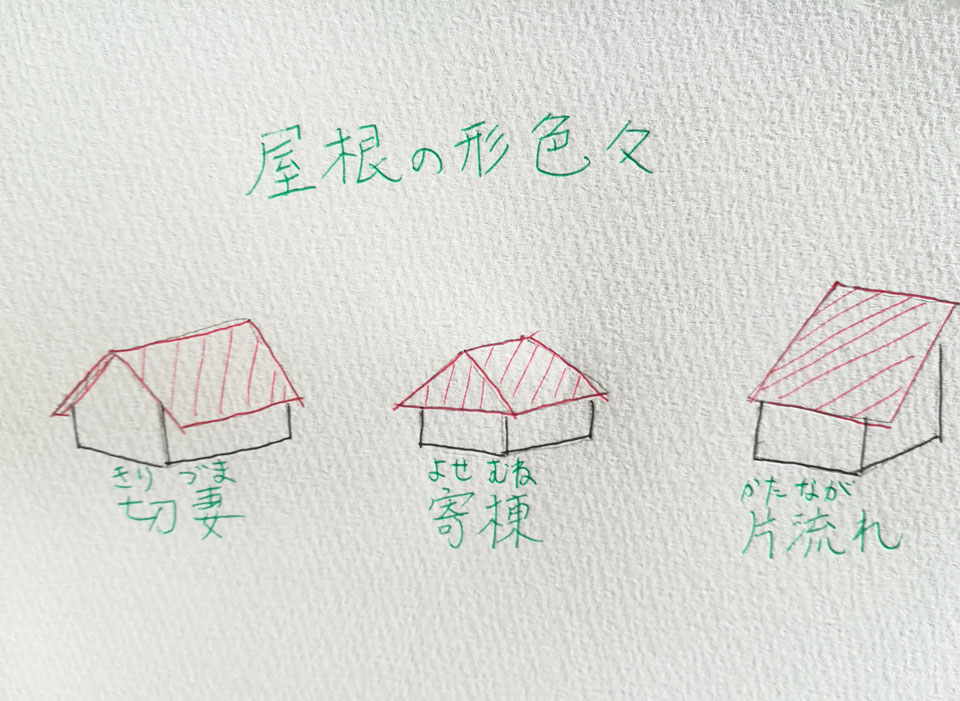 屋根の形色々
きりづま
切妻
よせむね
寄棟
かたなが
片流れ